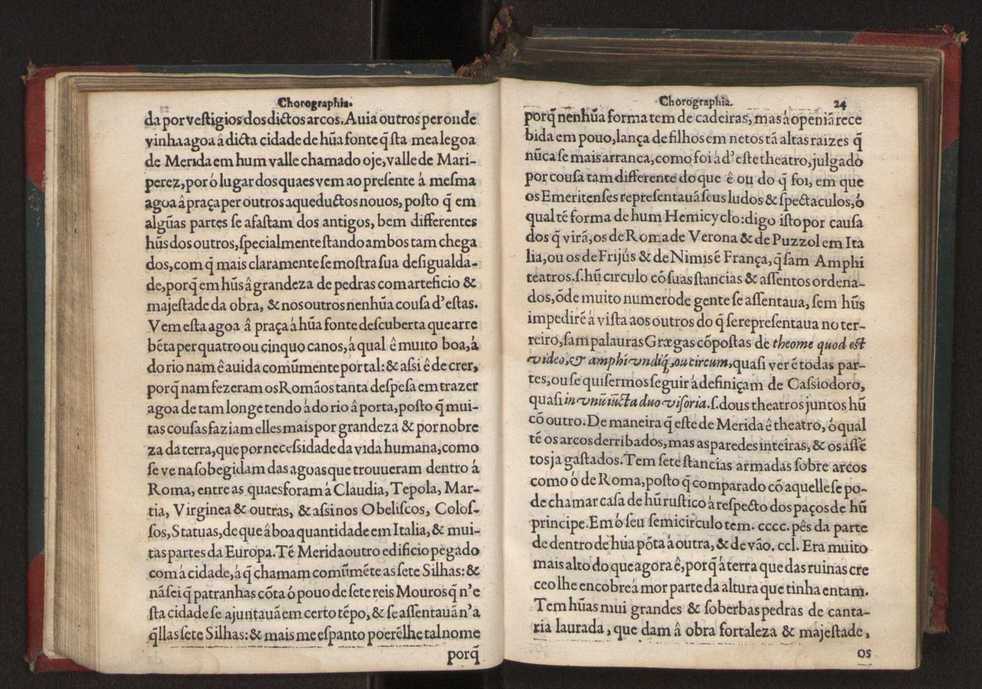 Chorographia.
da por vestigios dos dictos arcos. Auia outros per onde
vinha agoa á dicta cidade de hũa fonte q̃ sta mea legoa
de Merida em hum valle chamado oje, valle de Mari-
perez, por ó lugar dos quaes vem ao presente á mesma
agoa á praça per outros aqueductos nouos, posto q̃ em
algũas partes se afastam dos antigos, bem differentes
hũs dos outros, specialmente stando ambos tam chega
dos, com q̃ mais claramente se mostra sua desigualda-
de, porq̃ em hũs â grandeza de pedras com arteficio &
majestade da obra, & nos outros nenhũa cousa d'estas.
Vem esta agoa â praça á hũa fonte descuberta que arre
bẽta per quatro ou cinquo canos, á qual ê muito boa, á
do rio nam ê auida comũmente por tal: & assi ê de crer,
porq̃ nam fezeram os Romãos tanta despesa em trazer
agoa de tam longe tendo á do rio â porta, posto q̃ mui-
tas cousas faziam elles mais por grandeza & por nobre
za da terra, que por necessidade da vida humana, como
se ve na sobegidam das agoas que trouueram dentro á
Roma, entre as quaes foram á Claudia, Tepola, Mar-
tia, Virginea & outras, & assi nos Obeliscos, Colos-
sos, Statuas, de que â boa quantidade em Italia, & mui-
tas partes da Europa. Té Merida outro edificio pegado
com á cidade, á q̃ chamam comũmẽte as sete Silhas: &
nã sei q̃ patranhas cõta ó pouo de sete reis Mouros q̃ n'e
sta cidade se ajuntauã em certo tẽpo, & se assentauã n'a
q̃llas sete Silhas: & mais me espanto poerẽlhe tal nome
porq̃
Chorographia. 24
porq̃ nenhũa forma tem de cadeiras, mas á openiã rece
bida em pouo, lança de filhos em netos tã altas raizes q̃
nũca se mais arranca, como foi á d'este theatro, julgado
por cousa tam differente do que ê ou do q̃ foi, em que
os Emeritenses representauã seus ludos & spectaculos, ó
qual tẽ forma de hum Hemicyclo: digo isto por causa
dos q̃ virã, os de Roma de Verona & de Puzzol em Ita
lia, ou os de Frijús & de Nimis ẽ França, q̃ sam Amphi
teatros. s. hũ circulo cõ suas stancias & assentos ordena-
dos, õde muito numero de gente se assentaua, sem hũs
impedirẽ á vista aos outros do q̃ se representaua no ter-
reiro, sam palauras Græגas cõpostas de theome quod est
video, & amphi vndiq̃, ou circum, quasi ver ẽ todas par-
tes, ou se quisermos seguir á definiçam de Cassiodoro,
quasi in vnũ iũcta duo visoria. s. dous theatros juntos hũ
cõ outro. De maneira q̃ este de Merida ê theatro, ó qual
tẽ os arcos derribados, mas as paredes inteiras, & os assẽ
tos ja gastados. Tem sete stancias armadas sobre arcos
como ó de Roma, posto q̃ comparado cõ aquelle se po-
de chamar casa de hũ rustico á respecto dos paços de hũ
principe. Em ó seu semicirculo tem. cccc. pês da parte
de dentro de hũa põta á outra, & de vão. ccl. Era muito
mais alto do que agora ê, porq̃ á terra que das ruinas cre
ceo lhe encobre á mor parte da altura que tinha entam.
Tem hũas mui grandes & soberbas pedras de canta-
ria laurada, que dam â obra fortaleza & majestade,
os